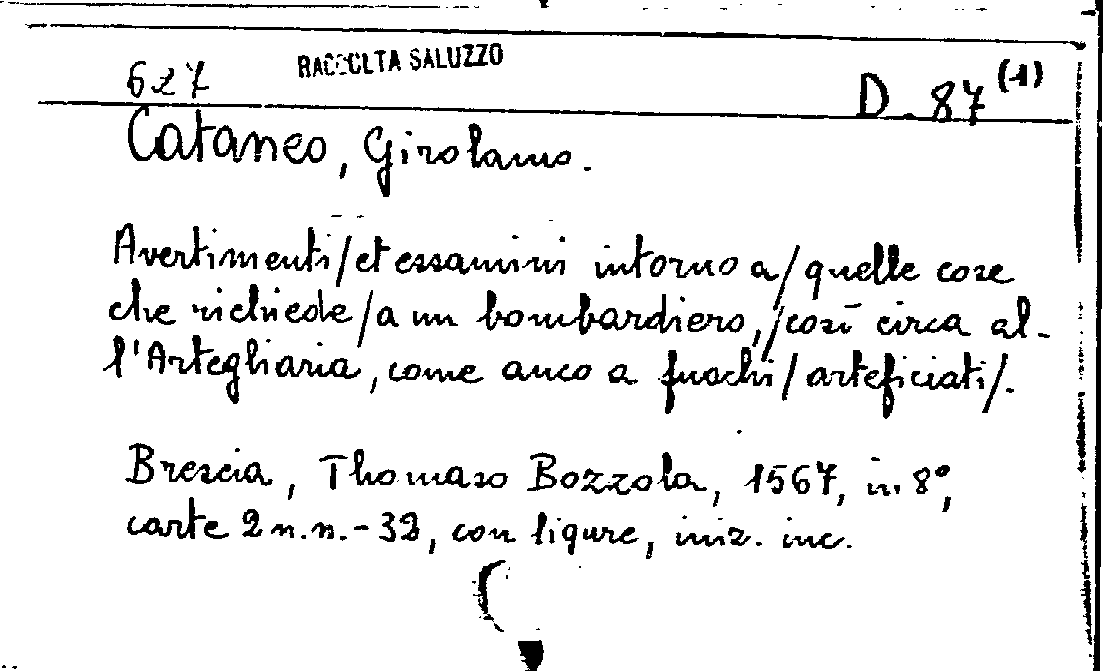 627 RACCOLTA SALUZZO D. 87 (1)
Cataneo, Girolamo.
Avertimenti/et essamini intorno a/quelle cose
che richiede/a un bombardiero,/così circa al-
l'Artegliaria, come anco a fuochi/arteficiati/.
Brescia, Thomaso Bozzola, 1567, in 8°,
carte 2 n.n.-32, con figure, iniz. inc.